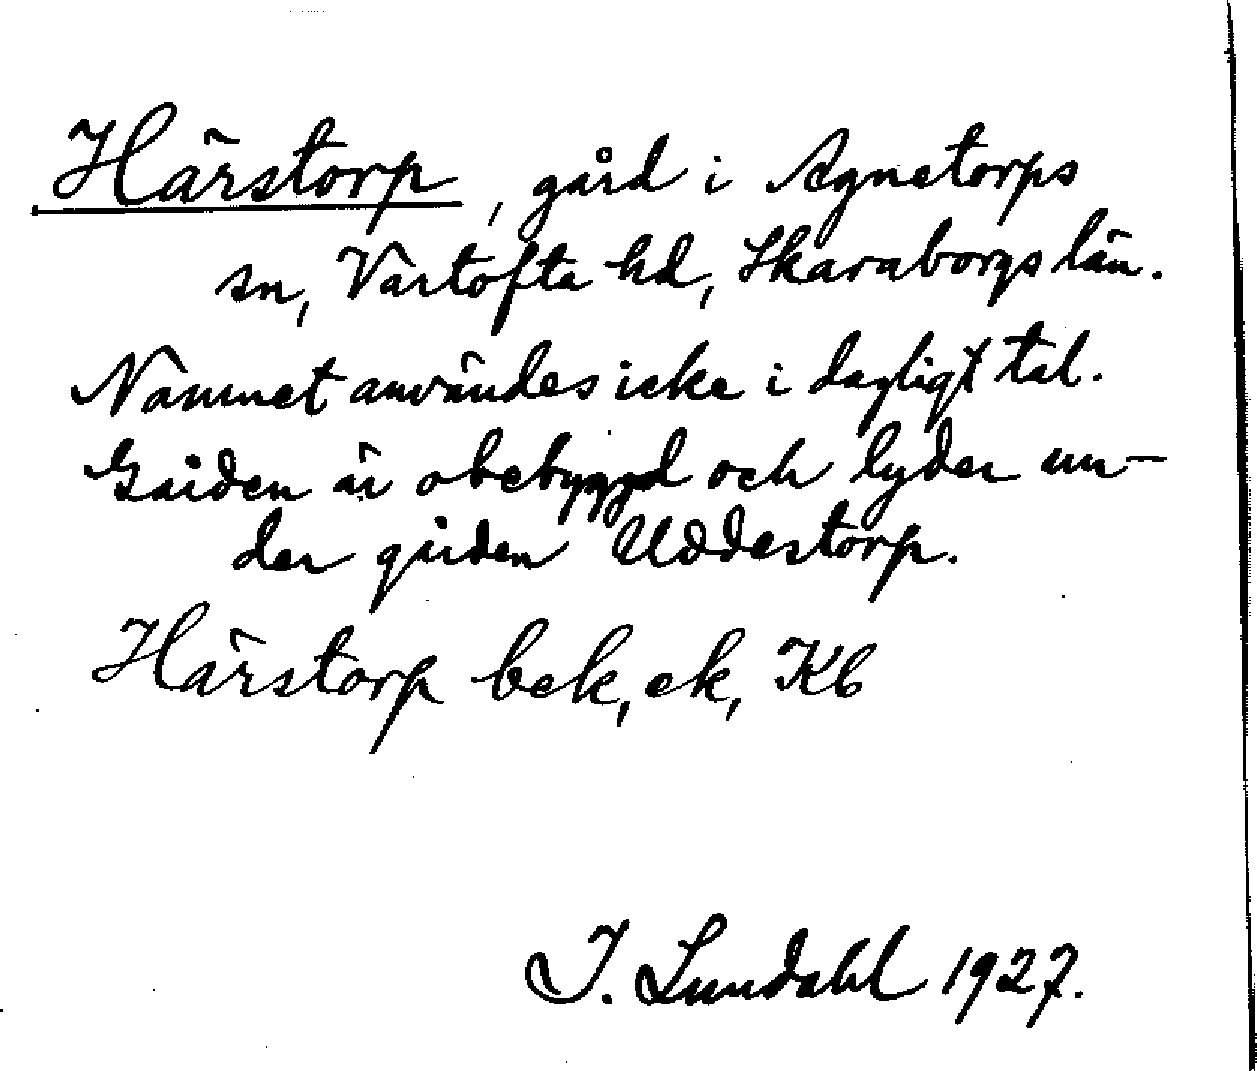 Härstorp, gård i Agnetorps
sn, Vartofta hd, Skaraborgs län.
Namnet användes icke i dagligt tal.
Gården är obebyggd och lyder un-
der gården Uddestorp.
Härstorp bek, ek, Kb
I. Lundahl 1927.